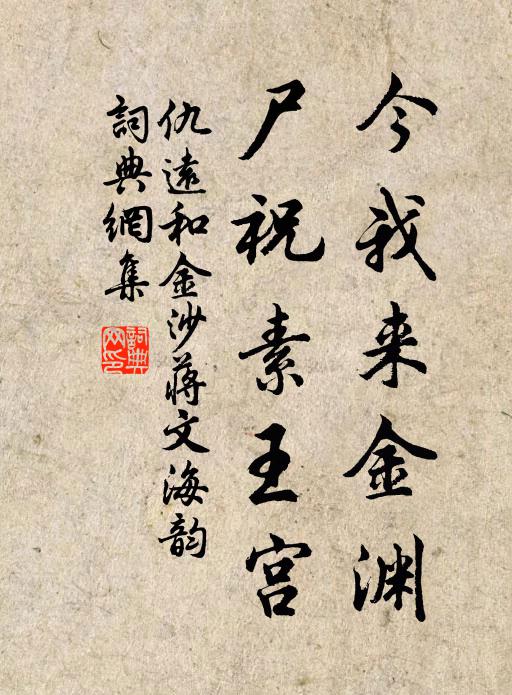 今我来金渊
尸祝素王宫
仇遠和金沙蒋文海韵
詞典網集
詞典网印